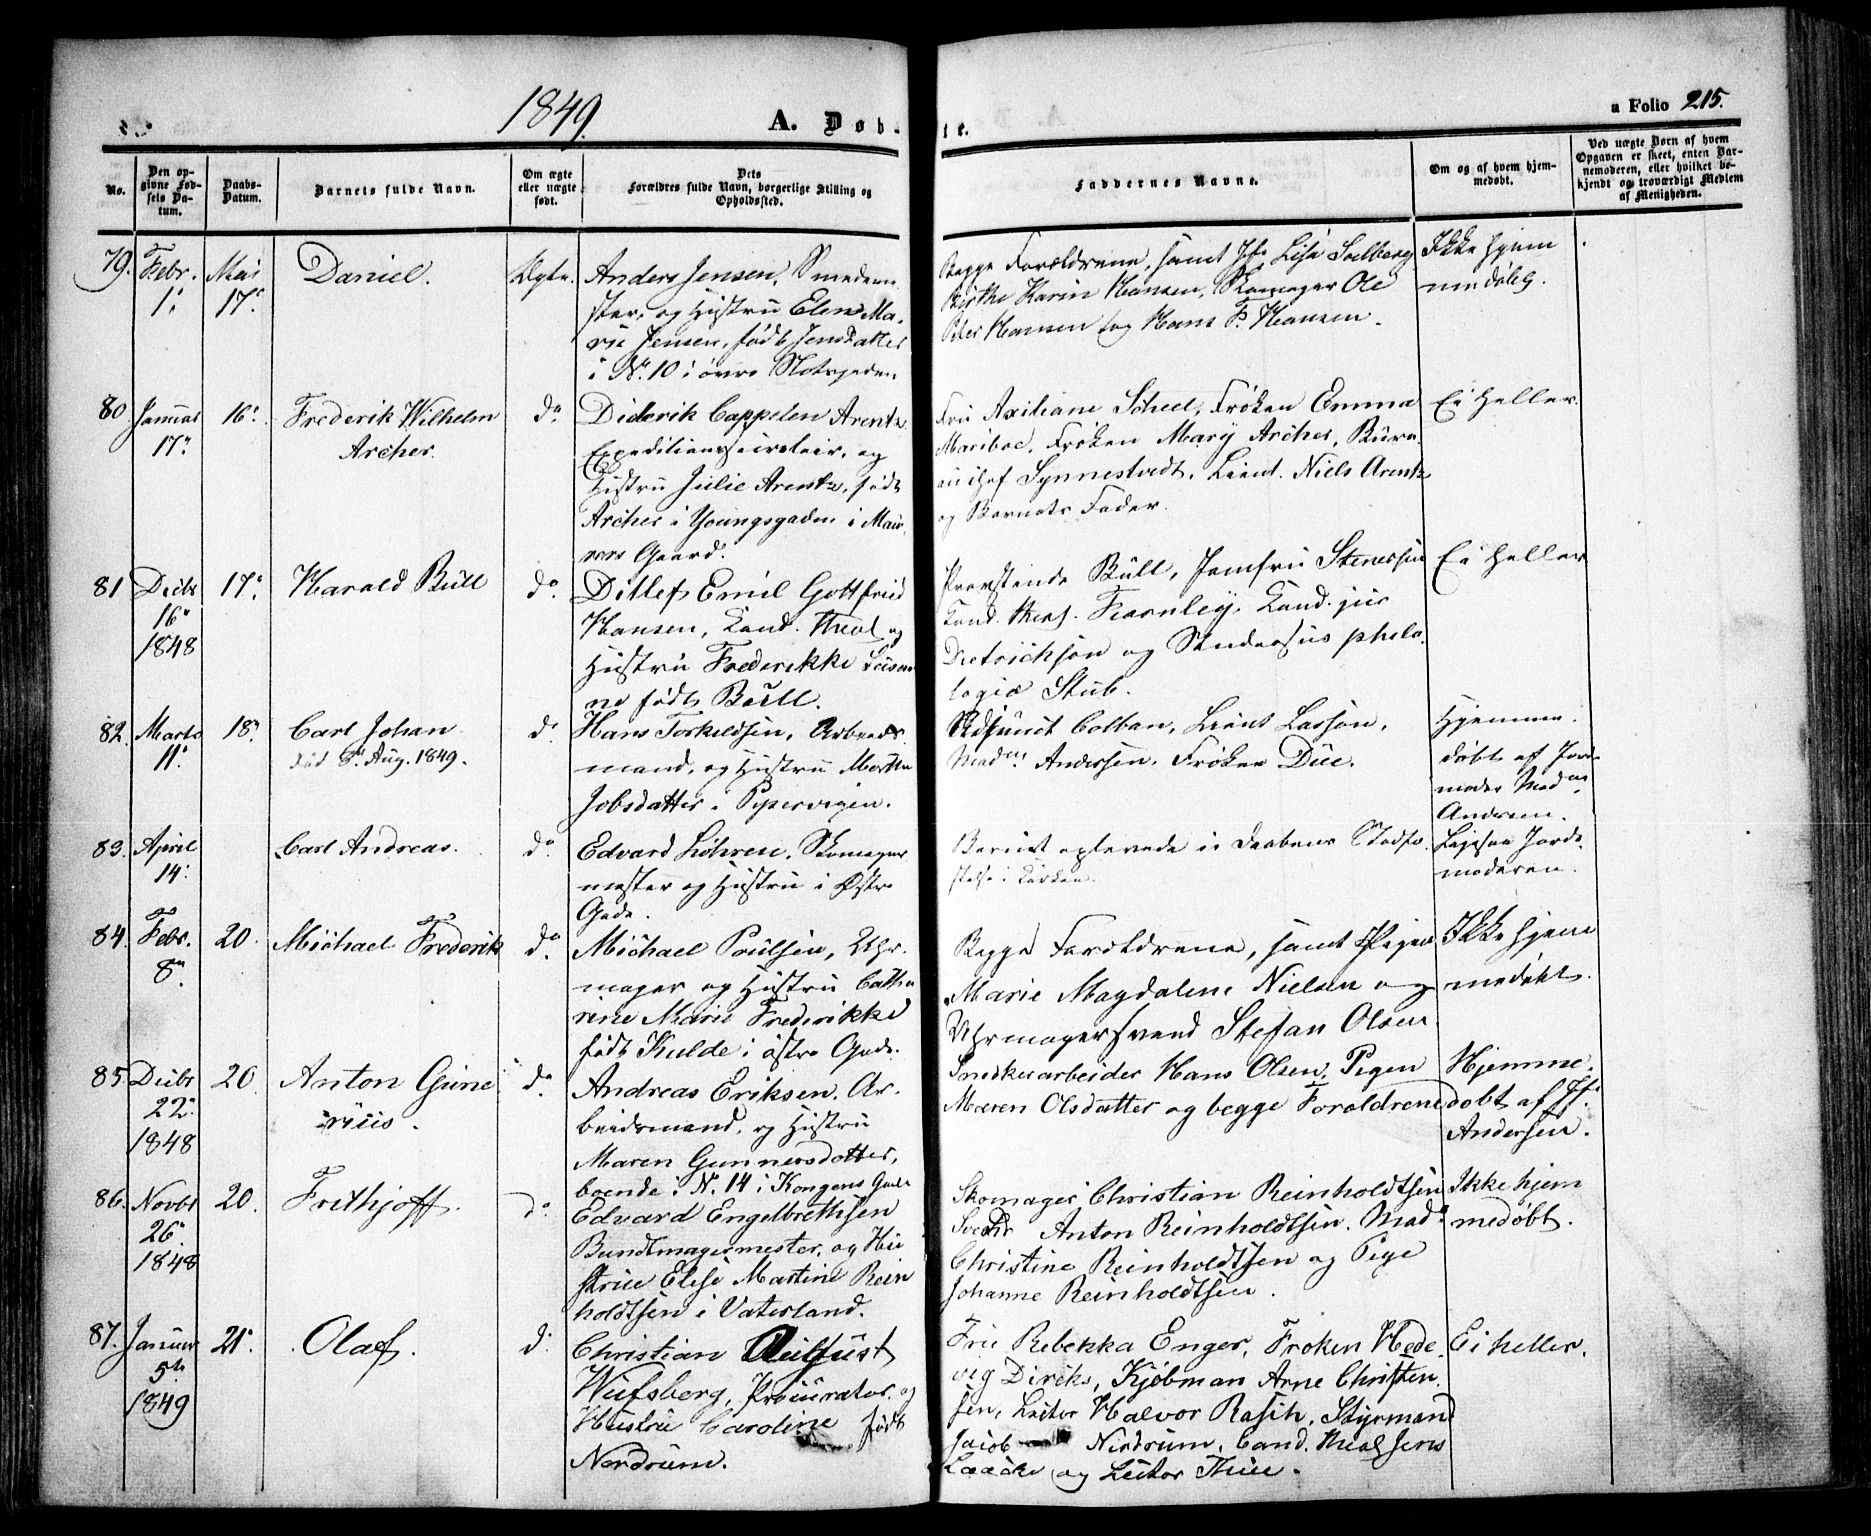 1849.
A. Døb-
te.
a Folio 215.
No.
Den op-
givne Fød-
sels Da-
tum.
Daabs-
Datum.
Barnets fulde Navn.
Om ægte
eller uægte
født.
Dets
Forældres fulde Navn, borgerlige Stilling og
Opholdssted.
Faddernes Navne.
Om og af hvem hjem-
medøbt.
Ved uægte Børn af hvem
Opgaven er skeet, enten Bar-
nemoderen, eller hvilket be-
kjendt og troværdigt Medlem
af Menigheden.
79. Febr.
1.
Mai
17.
Daniel.
Ægte.
Anders Jensen, Smedeme-
ster, og Hustru Elen Ma-
rie Jensen, født Jensdatter
i No. 10 i øvre Slotsgaden
Begge Forældrene, samt Jfr. Lise Solberg
Birthe Karin Hansen, Skomager Ole
Peter Hansen og Hans P. Hansen.
Ikke hjem
medøbt.
80. Januar
17.
16.
Frederik Wilhelm
Archer.
do
Diderik Cappelen Arentz
Expeditionssecretair, og
Hustru Julie Arentz, født
Archer i Youngsgaden i Mur-
rers Gaard.
Fru Axiliane Scheel, Frøken Emma
Mariboe, Frøken Mary Archer, Bure-
auchef Synnestvedt, Lieut. Niels Arentz
og Barnets Fader.
Ei heller.
81 Decbr
16
1848
17.
Harald Bull
do.
Ditlef Emil Gottfried
Hansen, Cand. theol og
Hustru Frederikke Susan-
ne født Bull.
Provstinde Bull, Jomfru Stenersen
Cand. theol. Fearnley, Cand. jur
Dietrichson og Studiosus philo-
logiæ Stub.
Ei heller
82. Marts
11.
18.
Carl Johan
død Aug. 1849.
do
Hans Torkildsen, Arbeids-
mand, og Hustru Marthe
Jobsdatter, Pipervigen.
Adjunct Colban, Lieut Lasson,
Mad. Andersen, Frøken Due.
Hjemme-
døbt af Jorde-
moder Mad
Andersen.
83. April
14.
Carl Andreas.
do
Edvard Löhren, Skomager
mester og Hustru i Østre
Gade.
Barnet oplevede ei Daabens Stadfæ-
stelse i Kirken.
Jorde-
moderen.
84. Febr.
8.
20.
Michael Frederik
do.
Michael Poulsen, Uhr-
mager og Hustru Catha-
rine Marie Frederikke
født Kulde i østre Gade.
Begge Forældrene, samt Pigen
Marie Magdalene Nielsen og
Uhrmagersvend Stefan Olsen.
Ikke hjem
medøbt.
85. Decbr
22.
1848
20.
Anton Gune
rius.
do.
Andreas Eriksen, Ar-
beidsmand, og Hustru
Maren Gunnersdatter,
boende i No. 14 i Kongens Gade
Snedkerarbeider Hans Olsen, Pigen
Maren Olsdatter og begge Forældrene
Hjemme-
døbt af Jf.
Andersen.
86. Novbr
26.
1848
20.
Frithjoff.
do
Edvard Engelbrethsen
Bundtmagermester, og Hu
strue Elise Martine Rein
holdtsen i Vaterland.
Skomager Christian Reinholdtsen
Svend Anton Reinholdtsen, Mad.
Christine Reinholdtsen og Pige
Johanne Reinholdtsen.
Ikke hjem
medøbt.
87. Januar
5te
1849
21.
Olaf.
do
Christian August
Wulfsberg, Procurator, og
Hustru Caroline født
Nordrum.
Frue Rebekka Enger, Frøken Hede-
vig Diriks, Kjøbman Arne Christen-
sen, Lector Halvor Rasch, Styrmand
Jacob Nordrum, Cand. theol Jens
Laache og Lector Thue.
Ei heller.